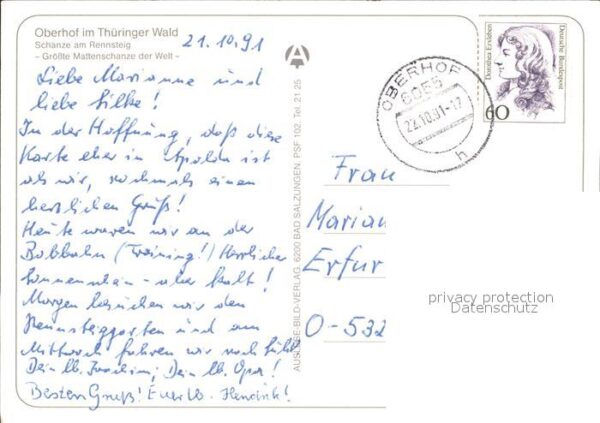 Oberhof im Thüringer Wald
Schanze am Rennsteig
– Größte Mattenschanze der Welt –
21.10.91
Liebe Marianne und
liebe Silke!
In der Hoffnung, daß diese
Karte eher in Apolda ist
als wir, nochmals einen
herzlichen Gruß!
Heute waren wir an der
Bobbahn (Training!) Herrlicher
Sonnenschein - aber kalt!
Morgen besuchen wir den
Rennsteiggarten und am
Mittwoch fahren wir nach Suhl!
Dein lb. Joachim; Dein lb. Opa!
Besten Gruß! Euer lb.
AUSLESE-BILD-VERLAG, 6200 BAD SALZUNGEN, PSF 102, Tel. 21 25
OBERHOF
6055
22.10.91-17
h
Dorothea Erxleben
Deutsche Bundespost
60
Frau
Marian
Erfur
O-532
privacy protection
Datenschutz